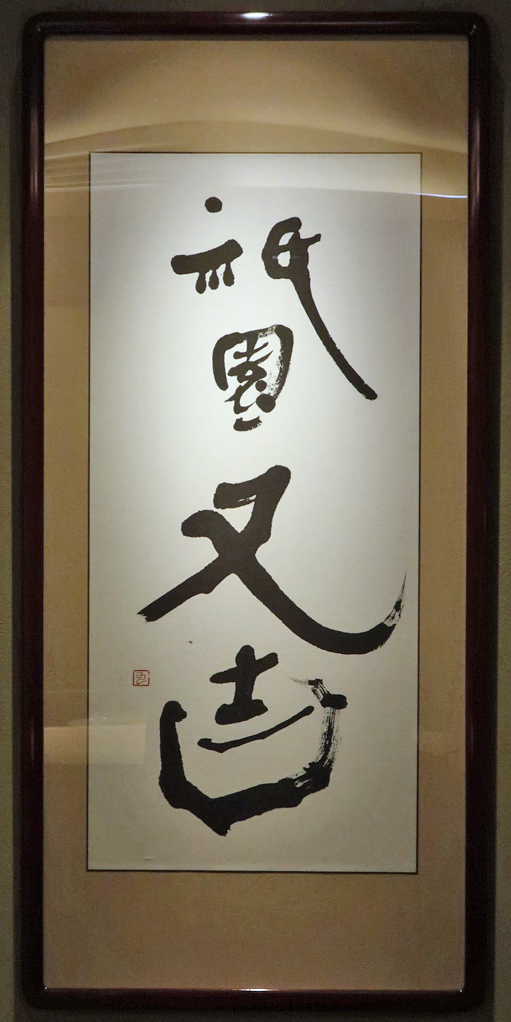 祇園又吉